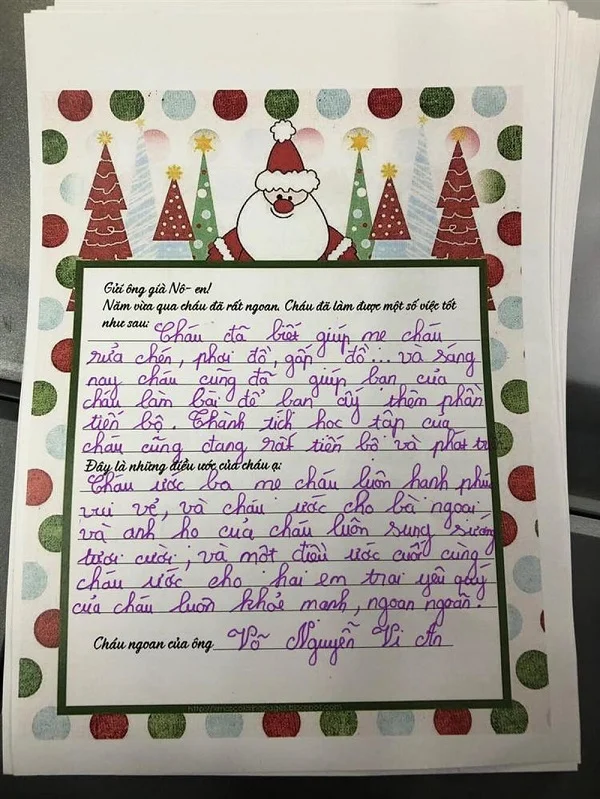 Gửi ông già Nô-en!
Năm vừa qua cháu đã rất ngoan. Cháu đã làm được một số việc tốt
như sau: Cháu đã biết giúp mẹ cháu
rửa chén, phơi đồ, gấp đồ... và sáng
nay cháu cũng đã giúp bạn của
cháu làm bài để bạn ấy thêm phần
tiến bộ. Thành tích học tập của
cháu cũng đang rất tiến bộ và phát tr
Đây là những điều ước của cháu ạ:
Cháu ước ba mẹ cháu luôn hạnh phú
vui vẻ, và cháu ước cho bà ngoại
và anh họ của cháu luôn sung sướng
tươi cười, và một điều ước cuối cùng
cháu ước cho hai em trai yêu quý
của cháu luôn khoẻ mạnh, ngoan ngoãn.
Cháu ngoan của ông Võ Nguyễn Vi An